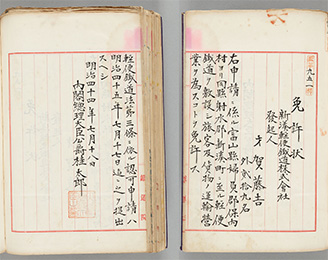 免許状
新湊軽便鉄道株式会社
発起人
才賀藤吉
外貳拾九名
右申請ニ係ル富山縣婦負郡保内
村ヨリ同縣射水郡新湊町ニ至ル軽便
鉄道ヲ敷設シ旅客及貨物ノ運輸營
業ヲ為スコトヲ免許ス
軽便鉄道法第三條ニ係ル認可申請ハ
明治四十五年七月十七日迄ニ之ヲ提出
スヘシ
明治四十四年七月十八日
内閣総理大臣公爵桂太郎